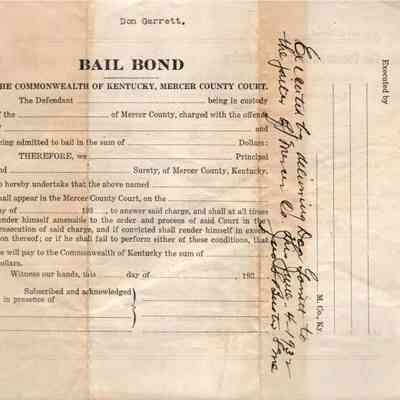 Don Garrett.
BAIL BOND
THE COMMONWEALTH OF KENTUCKY, MERCER COUNTY COURT.
The Defendant being in custody
f the of Mercer County, charged with the offense
and
eing admitted to bail in the sum of Dollars:
THEREFORE, we Principal
nd Surety, of Mercer County, Kentucky,
o hereby undertake that the above named
hall appear in the Mercer County Court, on the
ay of 193 , to answer said charge, and shall at all times
ender himself amenable to the order and process of said Court in the
rosecution of said charge, and if convicted shall render himself in exec
on thereof; or if he shall fail to perform either of these conditions, that
e will pay to the Commonwealth of Kentucky the sum of
ollars.
Witness our hands, this day of , 193
Subscribed and acknowledged
in presence of
Executed by delivering Don to
the jailer of Mercer Co. this June 4-1932
Executed by
M. Co., Ky.